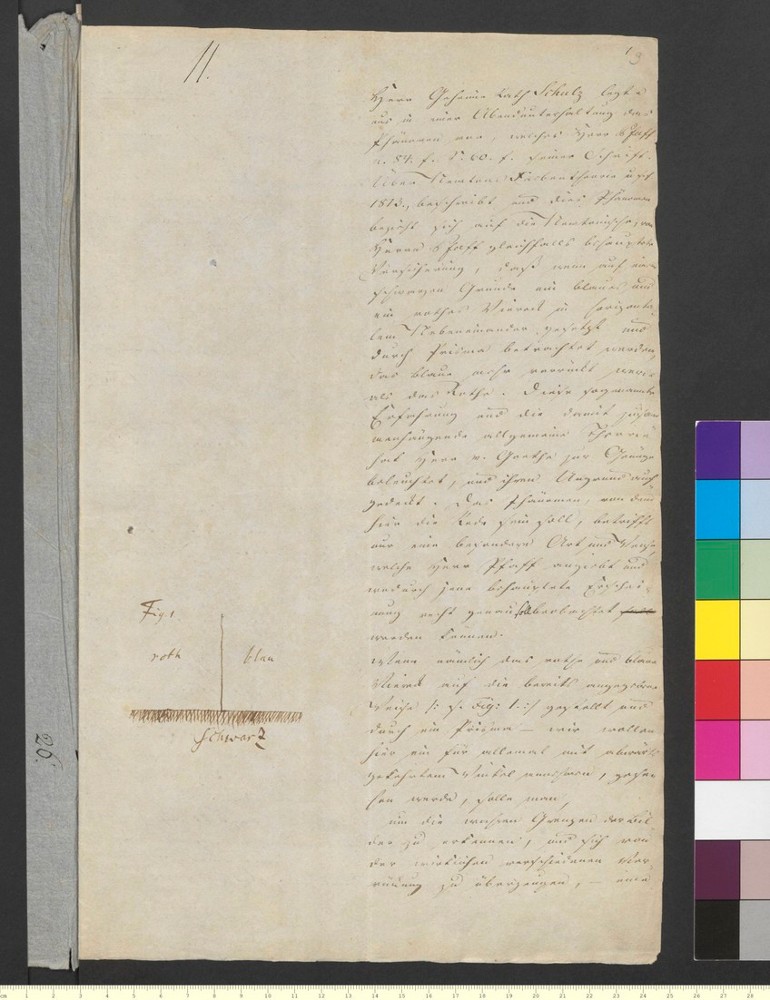 11.
Herr Geheime Rath Schulz legte
uns in einer Abendunterhaltung das
Phänomen vor, welches Herr Pfaff
Über Newtons Farbentheorie
1813., beschreibt und dies Phänomen
bezieht sich auf die Newtonische, von
Herrn Pfaff gleichfalls behauptete
Versicherung, daß wenn auf einem
schwarzen Grunde ein blaues und
ein rothes Viereck in horizonta-
lem Nebeneinander gesetzt und
durch Prisma betrachtet werden,
das blaue mehr verrückt werde
als das Rothe. Diese sogenannte
Erfahrung und die damit zusam
menhängende allgemeine Theorie
hat Herr v. Goethe zur Genüge
beleuchtet, und ihren Ungrund auf
gedeckt. Das Phänomen, von dem
hier die Rede sein soll, betrifft
nur eine besondere Art und Weise,
welche Herr Pfaff angiebt und
wodurch jene behauptete Erschei-
nung recht genau soll beobachtet
werden können.
Wenn nämlich das rothe und blaue
Viereck auf die bereits angegebene
Weise /: s. Fig: 1. :/ gestellt und
durch ein Prisma — wir wollen
hier ein für allemal mit abwärts
gekehrtem Winkel annehmen, gese
hen werde, solle man,
um die wahren Grenzen der Bil
der zu erkennen, und sich von
der wirklichen verschiedenen Ver
rückung zu überzeugen, — einen
Fig. 1
roth blau
schwarz
26.